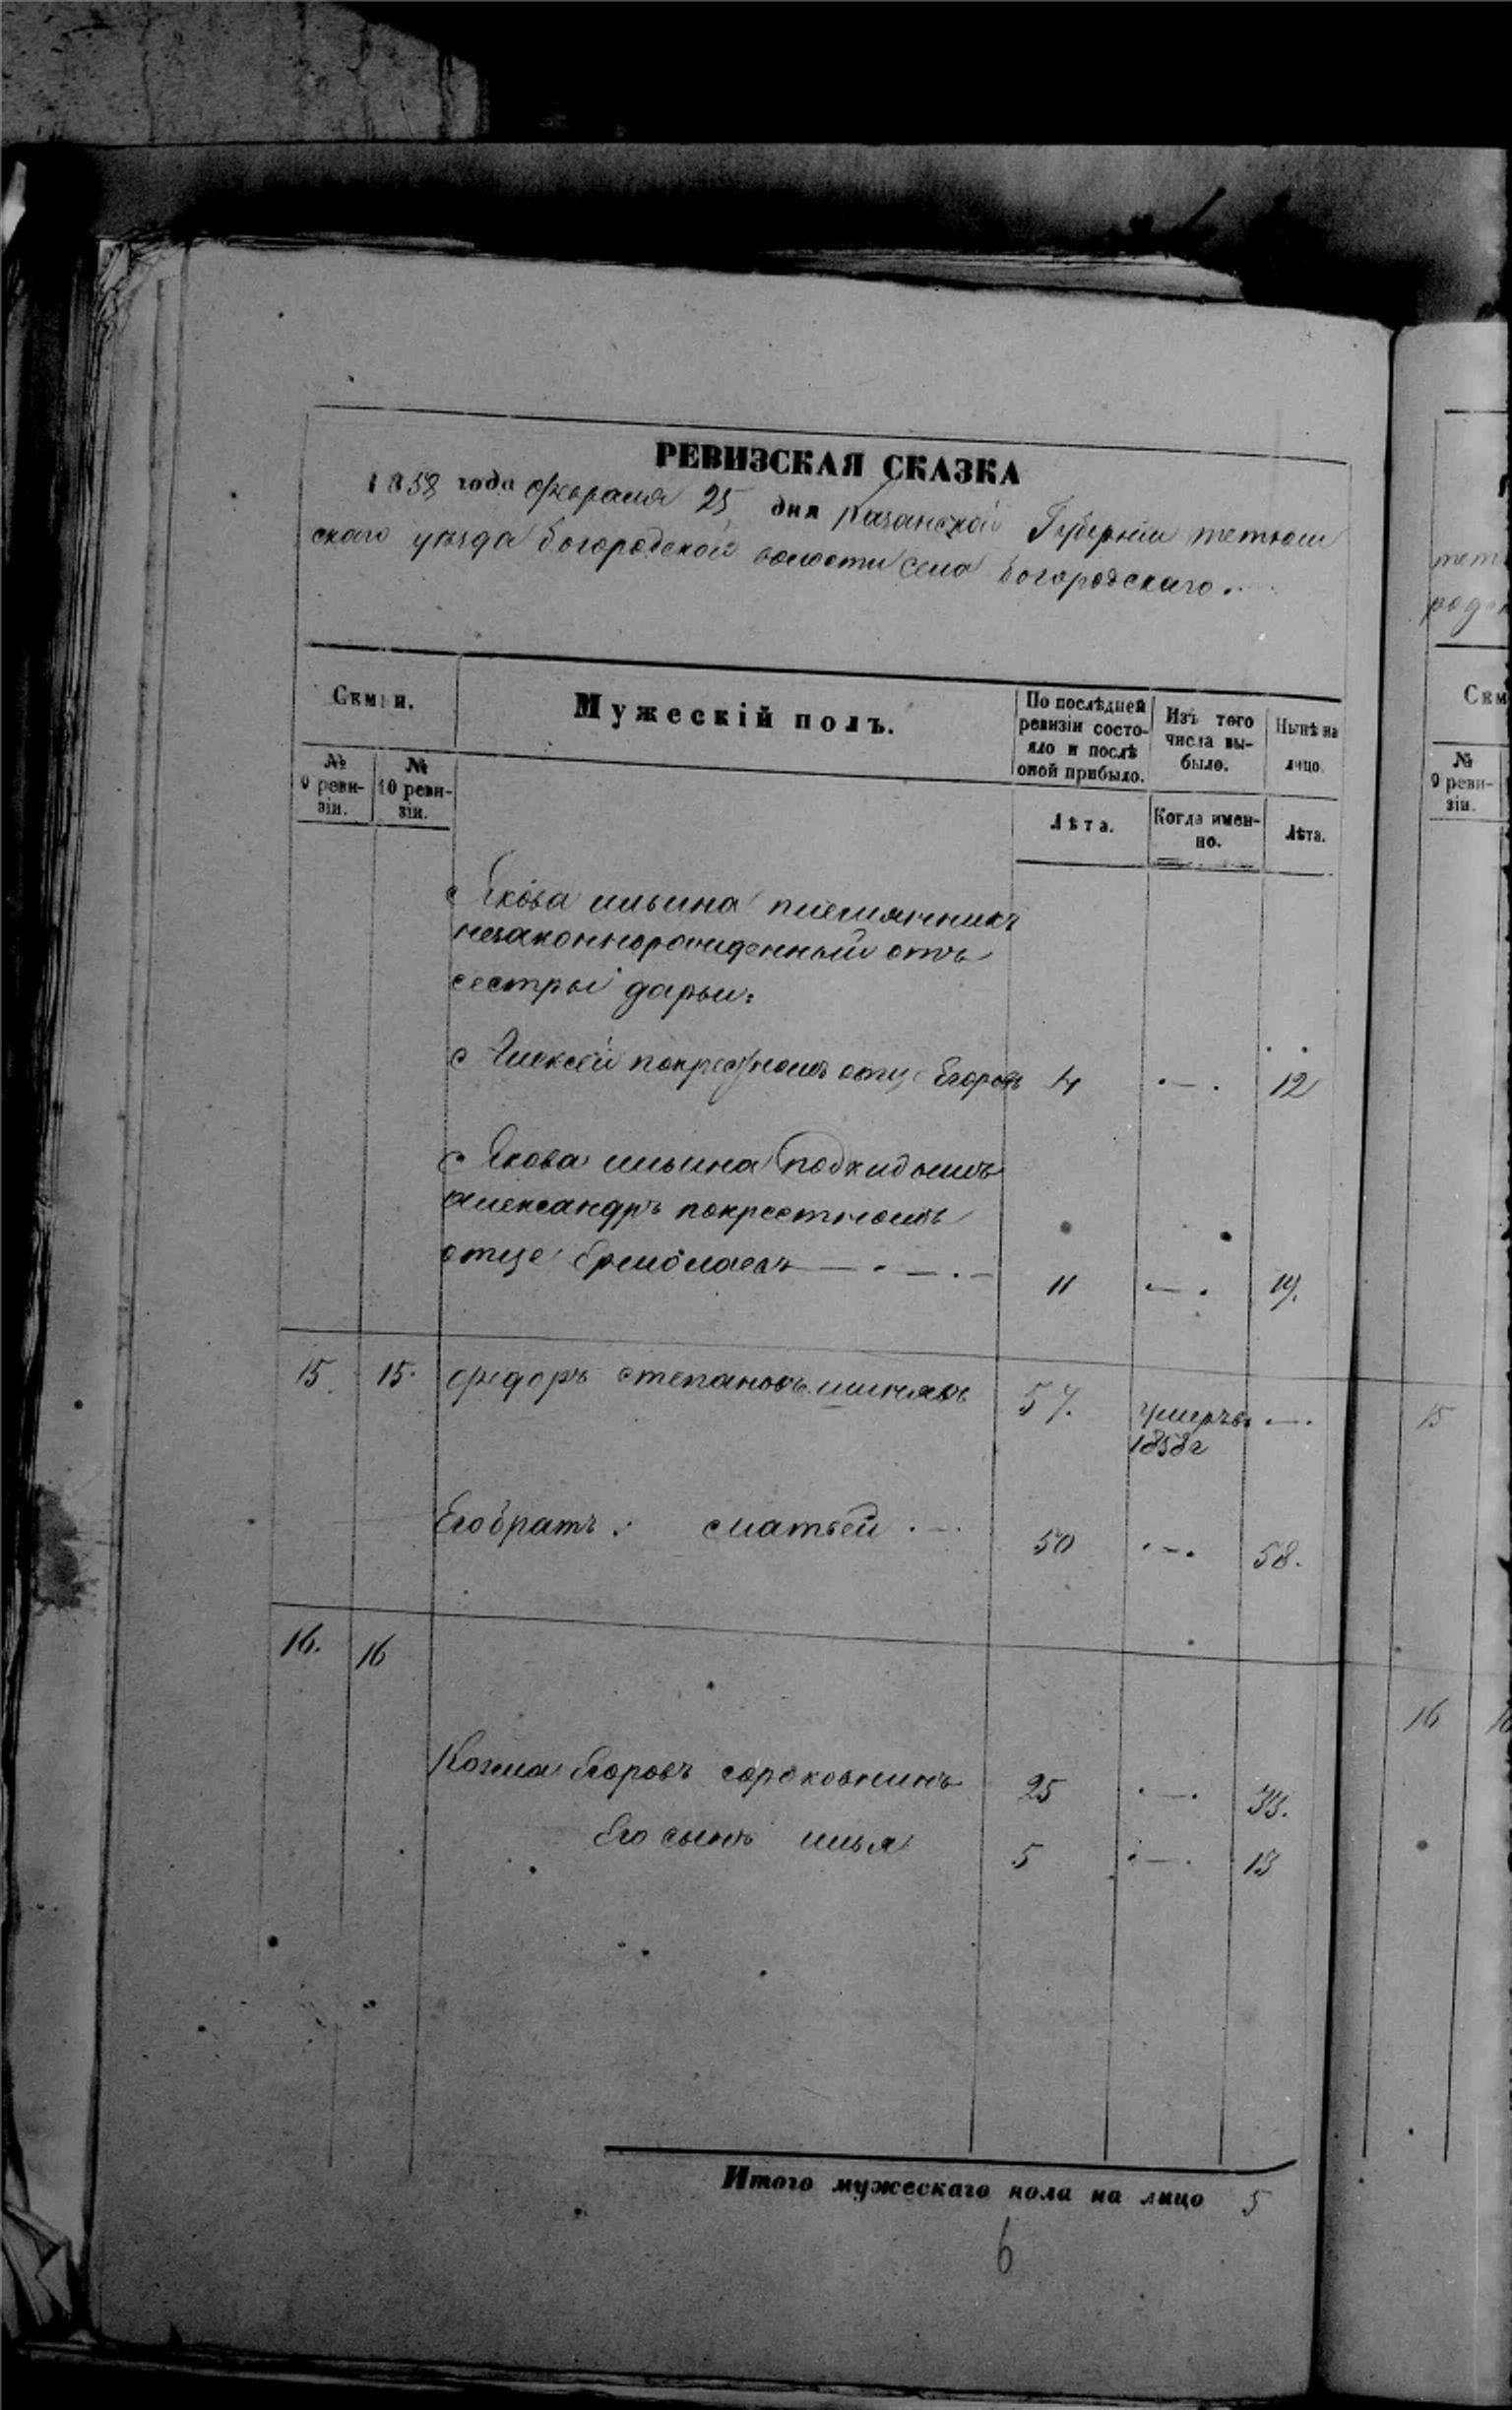 РЕВИЗСКАЯ СКАЗКА
1858 года февраля 25 дня Казанской Губерніи тетюш
скаго уезда богородской волости села богородскаго.
Семьи.
Мужескій полъ.
По послѣдней ревизіи состояло и послѣ оной прибыло.
Изъ того числа выбыло.
Нынѣ на лицо.
№ 9 ревизіи.
№ 10 ревизіи.
Лѣта.
Когда именно.
Лѣта.
Якова ильина племянникъ
незаконнорожденный отъ
сестры дарьи:
Алексей покрестномъ отце Егоровъ 4 . — . 12
Якова ильина подкидышъ
александръ покрестномъ
отце Ермолаевъ — . — . — 11 — . 19.
15. 15. федоръ степановъ 57. умеръ в . — .
1858 г
Его братъ: матвей . — . 50 . — . 58.
16. 16
Козма Егоровъ сороковнинъ 25 . — . 33.
Его сынъ илья 5 . — . 13
Итого мужескаго пола на лицо 5
6
тет
род
Сем
№ 9 ревизіи.
15
16